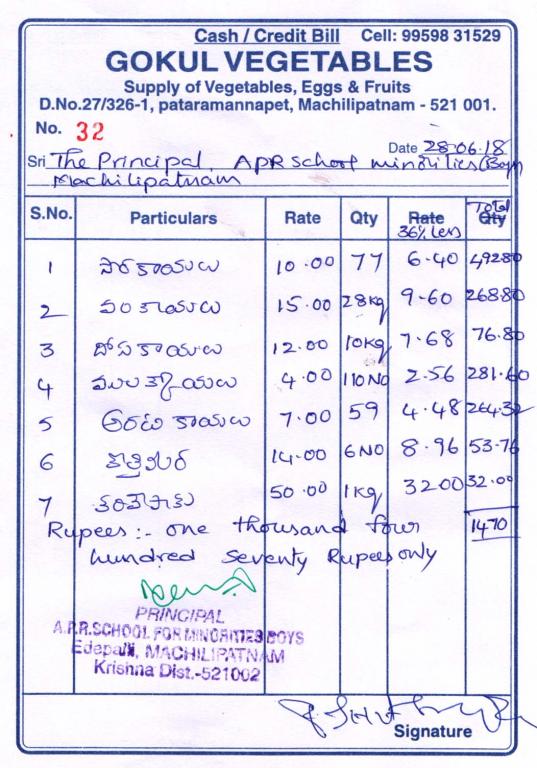 Cash / Credit Bill Cell: 99598 31529
GOKUL VEGETABLES
Supply of Vegetables, Eggs & Fruits
D.No.27/326-1, pataramannapet, Machilipatnam - 521 001.
No. 32
Date 28-06-18
Sri The Principal, APR School minorities (Boys)
Machilipatnam
S.No. Particulars Rate Qty Rate 36% Less Qty Total
1 సొరకాయలు 10.00 77 6.40 492.80
2 వంకాయలు 15.00 28kg 9-60 268.80
3 దోసకాయలు 12.00 10kg 7.68 76.80
4 ములక్కాయలు 4.00 110 NO 2.56 281.60
5 అరటికాయలు 7.00 59 4.48 264.32
6 కొత్తిమీర 14.00 6 NO 8.96 53.76
7 కరివేపాకు 50.00 1kg 32.00 32.00
Rupees :- one thousand four 1470
hundred seventy Rupees only
PRINCIPAL
A.P.R.SCHOOL FOR MINORITIES BOYS
Edepalli, MACHILIPATNAM
Krishna Dist.-521002
Signature